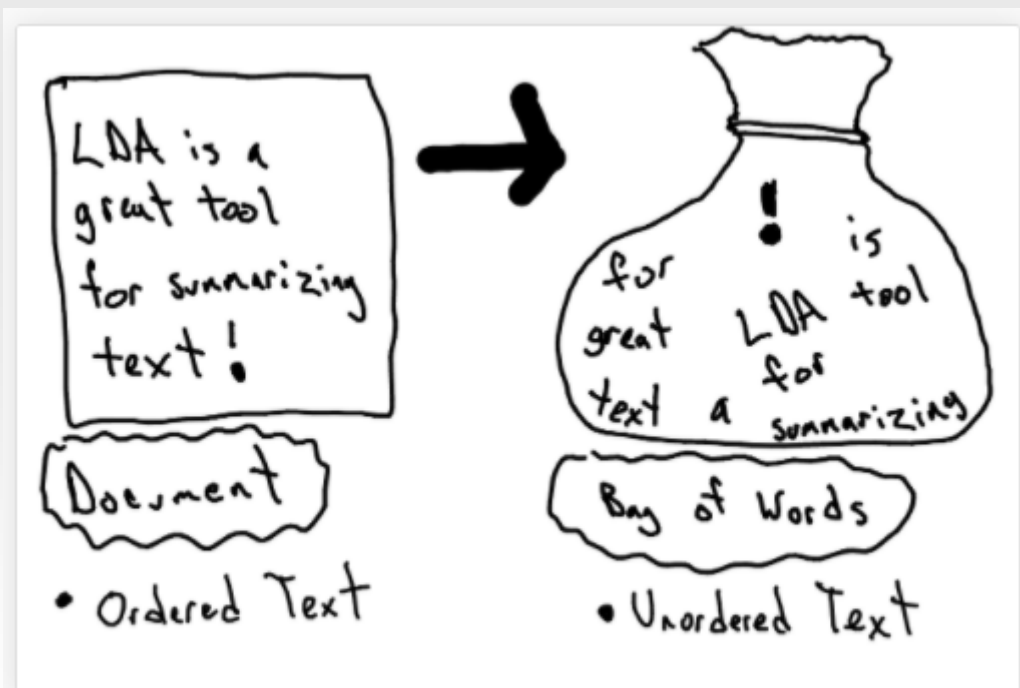 LDA is a
great tool
for summarizing
text!
Document
• Ordered Text
!
is
for
tool
great
LDA
for
text
a
summarizing
Bag of Words
• Unordered Text